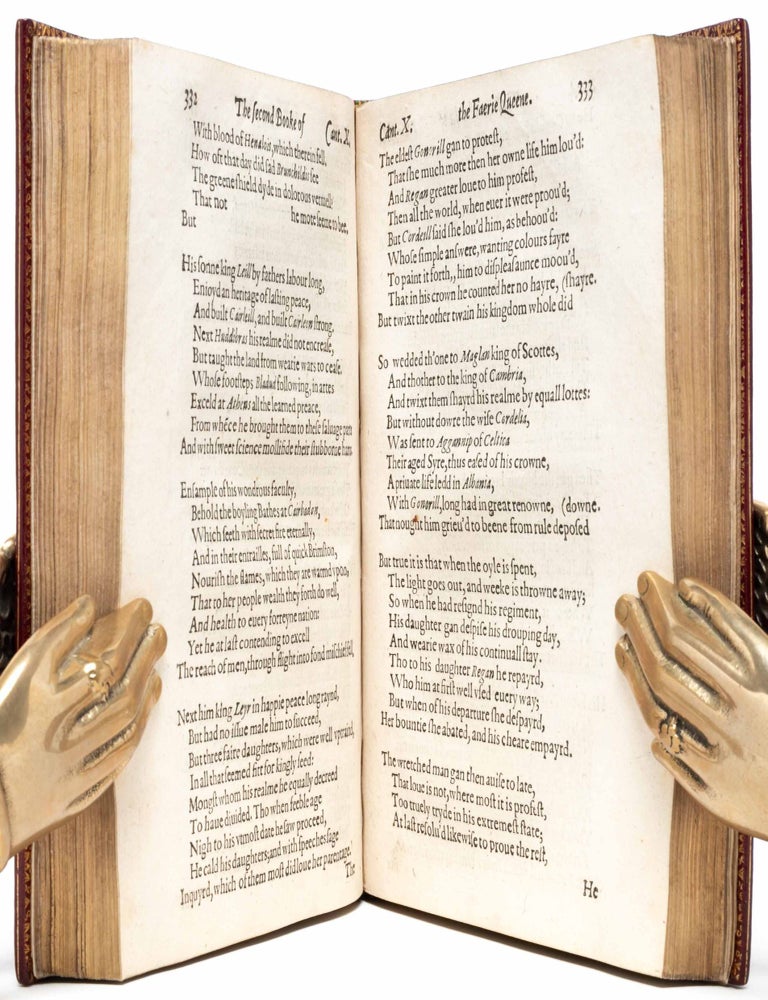 332 The second Booke of Cant. X.
With blood of Henalois, which therein fell.
How oft that day did sad Brunchildis see
The greene shield dyde in dolorous vermeil?
That not he mote seeme to bee.
But
His sonne king Leill by fathers labour long,
Enioyd an heritage of lasting peace,
And built Cairleill, and built Cairleon strong.
Next Huddibras his realme did not encrease,
But taught the land from wearie wars to cease.
Whose footsteps Bladud following, in artes
Exceld at Athens all the learned preace,
From whēce he brought them to these saluage parts
And with sweet science mollifide their stubborne harts.
Ensample of his wondrous faculty,
Behold the boyling Bathes at Cairbadon,
Which seeth with secret fire eternally,
And in their entrailles, full of quick Brimston,
Nourish the flames, which they are warmd vpon,
That to her people wealth they forth do well,
And health to euery forreyne nation:
Yet he at last contending to excell
The reach of men, through flight into fond mischief fell,
Next him king Leyr in happie peace long raynd,
But had no issue male him to succeed,
But three faire daughters, which were well vptraind,
In all that seemed fit for kingly seed:
Mongst whom his realme he equally decreed
To haue diuided. Tho when feeble age
Nigh to his vtmost date he saw proceed,
He cald his daughters; and with speeches sage
Inquyrd, which of them most did loue her parentage.
The
Cant. X. the Faerie Queene. 333
The eldest Gonorill gan to protest,
That she much more then her owne life him lou'd:
And Regan greater loue to him profest,
Then all the world, when euer it were proou'd;
But Cordeill said she lou'd him, as behoou'd:
Whose simple answere, wanting colours fayre
To paint it forth,, him to displeasaunce moou'd,
That in his crown he counted her no hayre, (shayre.
But twixt the other twain his kingdom whole did
So wedded th'one to Maglan king of Scottes,
And thother to the king of Cambria,
And twixt them shayrd his realme by equall lottes:
But without dowre the wise Cordelia,
Was sent to Aggannip of Celtica
Their aged Syre, thus eased of his crowne,
A priuate life ledd in Albania,
With Gonorill, long had in great renowne, (downe.
That nought him grieu'd to beene from rule deposed
But true it is that when the oyle is spent,
The light goes out, and weeke is throwne away;
So when he had resignd his regiment,
His daughter gan despise his drouping day,
And wearie wax of his continuall stay.
Tho to his daughter Regan he repayrd,
Who him at first well vsed euery way;
But when of his departure she despayrd,
Her bountie she abated, and his cheare empayrd.
The wretched man gan then auise to late,
That loue is not, where most it is profest,
Too truely tryde in his extremest state;
At last resolu'd likewise to proue the rest,
He